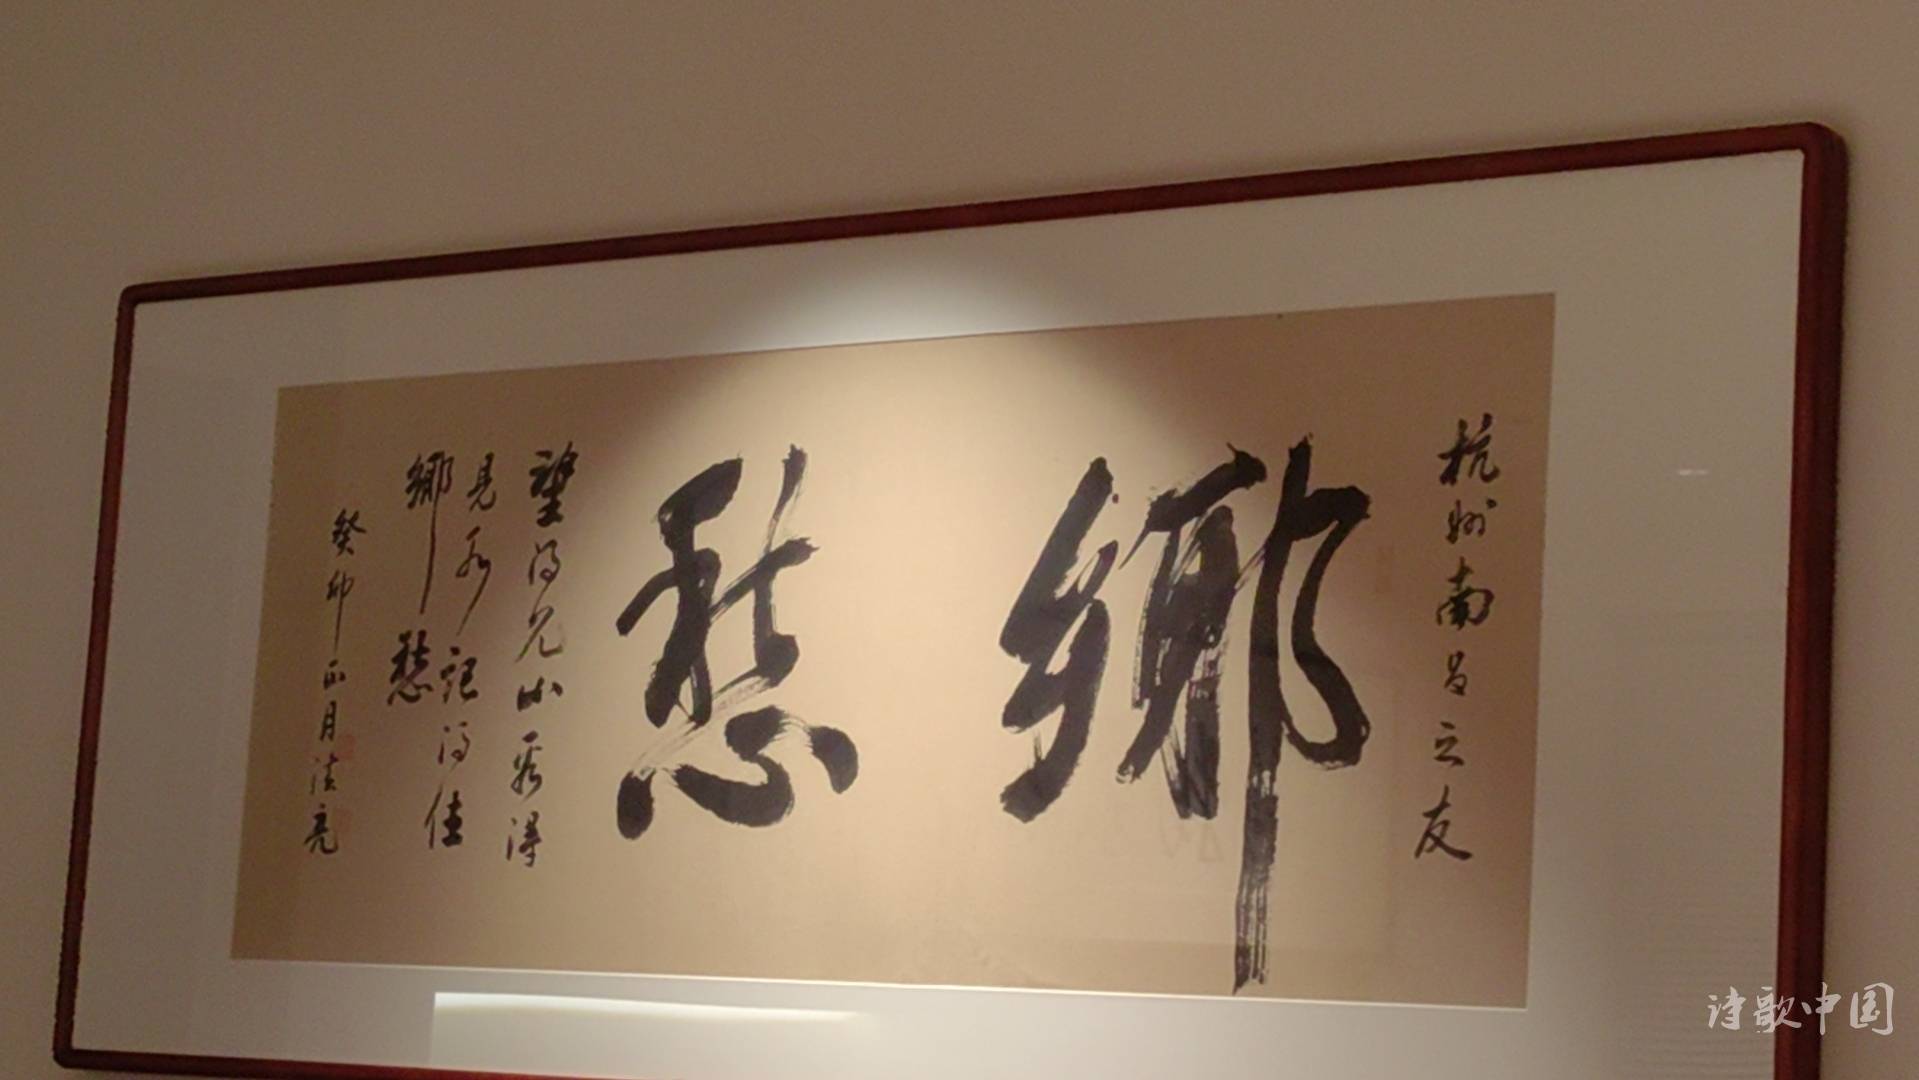 杭州南昌之友
鄉愁
望得見山看得
見水記得住
鄉愁
癸卯正月法亮
诗歌中国